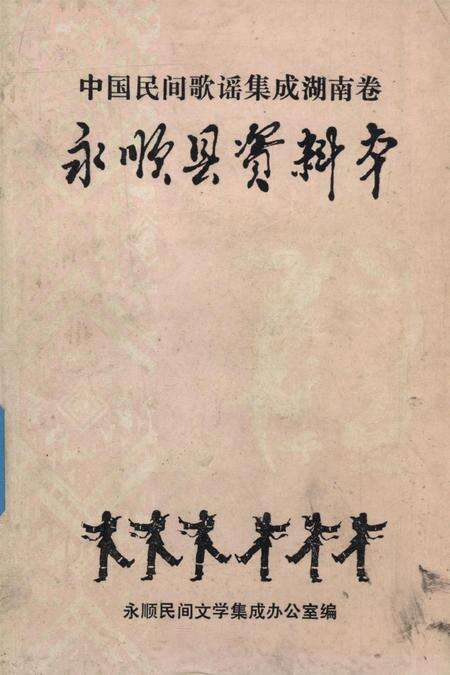 中国民间歌谣集成湖南卷
永顺县资料本
永顺民间文学集成办公室编